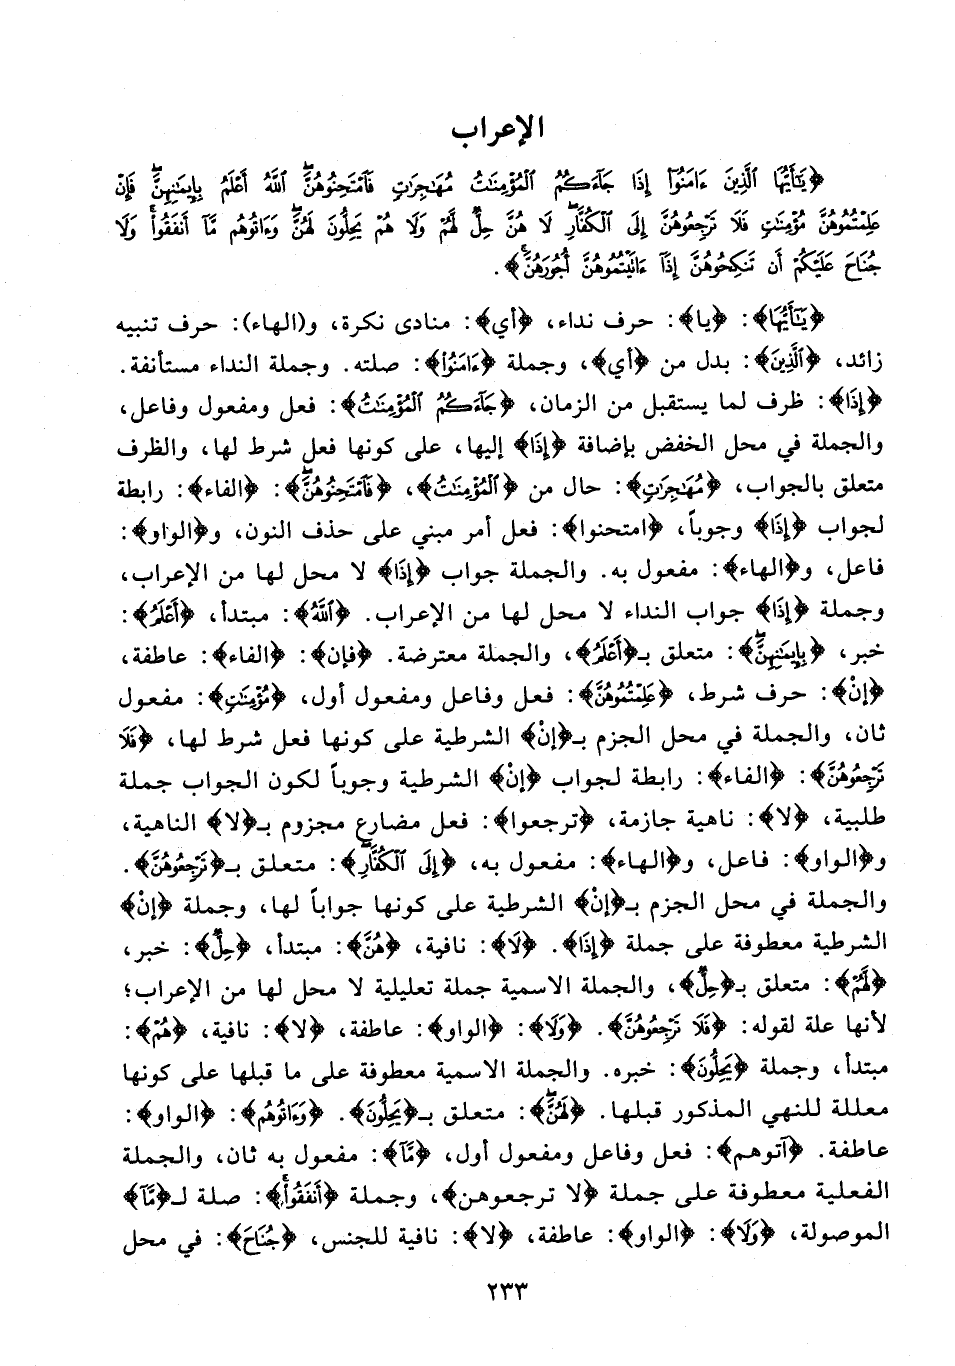 الإعراب
﴿يَٰٓأَيُّهَا ٱلَّذِينَ ءَامَنُوٓا۟ إِذَا جَآءَكُمُ ٱلْمُؤْمِنَٰتُ مُهَٰجِرَٰتٍ فَٱمْتَحِنُوهُنَّ ۖ ٱللَّهُ أَعْلَمُ بِإِيمَٰنِهِنَّ ۖ فَإِنْ
عَلِمْتُمُوهُنَّ مُؤْمِنَٰتٍ فَلَا تَرْجِعُوهُنَّ إِلَى ٱلْكُفَّارِ ۖ لَا هُنَّ حِلٌّ لَّهُمْ وَلَا هُمْ يَحِلُّونَ لَهُنَّ ۖ وَءَاتُوهُم مَّآ أَنفَقُوا۟ ۚ وَلَا
جُنَاحَ عَلَيْكُمْ أَن تَنكِحُوهُنَّ إِذَآ ءَاتَيْتُمُوهُنَّ أُجُورَهُنَّ ۚ﴾.
﴿يَٰٓأَيُّهَا﴾: ﴿يا﴾: حرف نداء، ﴿أي﴾: منادى نكرة، و(الهاء): حرف تنبيه
زائد، ﴿ٱلَّذِينَ﴾: بدل من ﴿أي﴾، وجملة ﴿ءَامَنُوٓا۟﴾: صلته. وجملة النداء مستأنفة.
﴿إِذَا﴾: ظرف لما يستقبل من الزمان، ﴿جَآءَكُمُ ٱلْمُؤْمِنَٰتُ﴾: فعل ومفعول وفاعل،
والجملة في محل الخفض بإضافة ﴿إِذَا﴾ إليها، على كونها فعل شرط لها، والظرف
متعلق بالجواب، ﴿مُهَٰجِرَٰتٍ﴾: حال من ﴿ٱلْمُؤْمِنَٰتُ﴾، ﴿فَٱمْتَحِنُوهُنَّ ۖ﴾: ﴿الفاء﴾: رابطة
لجواب ﴿إِذَا﴾ وجوباً، ﴿امتحنوا﴾: فعل أمر مبني على حذف النون، و﴿الواو﴾:
فاعل، و﴿الهاء﴾: مفعول به. والجملة جواب ﴿إِذَا﴾ لا محل لها من الإعراب،
وجملة ﴿إِذَا﴾ جواب النداء لا محل لها من الإعراب. ﴿ٱللَّهُ﴾: مبتدأ، ﴿أَعْلَمُ﴾:
خبر، ﴿بِإِيمَٰنِهِنَّ ۖ﴾: متعلق بـ﴿أَعْلَمُ﴾، والجملة معترضة. ﴿فإن﴾: ﴿الفاء﴾: عاطفة،
﴿إنْ﴾: حرف شرط، ﴿عَلِمْتُمُوهُنَّ﴾: فعل وفاعل ومفعول أول، ﴿مُؤْمِنَٰتٍ﴾: مفعول
ثان، والجملة في محل الجزم بـ﴿إنْ﴾ الشرطية على كونها فعل شرط لها، ﴿فَلَا
تَرْجِعُوهُنَّ﴾: ﴿الفاء﴾: رابطة لجواب ﴿إنْ﴾ الشرطية وجوباً لكون الجواب جملة
طلبية، ﴿لا﴾: ناهية جازمة، ﴿ترجعوا﴾: فعل مضارع مجزوم بـ﴿لا﴾ الناهية،
و﴿الواو﴾: فاعل، و﴿الهاء﴾: مفعول به، ﴿إِلَى ٱلْكُفَّارِ ۖ﴾: متعلق بـ﴿تَرْجِعُوهُنَّ﴾.
والجملة في محل الجزم بـ﴿إنْ﴾ الشرطية على كونها جواباً لها، وجملة ﴿إنْ﴾
الشرطية معطوفة على جملة ﴿إِذَا﴾. ﴿لَا﴾: نافية، ﴿هُنَّ﴾: مبتدأ، ﴿حِلٌّ﴾: خبر،
﴿لَّهُمْ﴾: متعلق بـ﴿حِلٌّ﴾، والجملة الاسمية جملة تعليلية لا محل لها من الإعراب؛
لأنها علة لقوله: ﴿فَلَا تَرْجِعُوهُنَّ﴾. ﴿وَلَا﴾: ﴿الواو﴾: عاطفة، ﴿لا﴾: نافية، ﴿هُمْ﴾:
مبتدأ، وجملة ﴿يَحِلُّونَ﴾: خبره. والجملة الاسمية معطوفة على ما قبلها على كونها
معللة للنهي المذكور قبلها. ﴿لَهُنَّ ۖ﴾: متعلق بـ﴿يَحِلُّونَ﴾. ﴿وَءَاتُوهُم﴾: ﴿الواو﴾:
عاطفة. ﴿آتوهم﴾: فعل وفاعل ومفعول أول، ﴿مَّآ﴾: مفعول به ثان، والجملة
الفعلية معطوفة على جملة ﴿لا ترجعوهن﴾، وجملة ﴿أَنفَقُوا۟ ۚ﴾: صلة لـ﴿مَّآ﴾
الموصولة، ﴿وَلَا﴾: ﴿الواو﴾: عاطفة، ﴿لا﴾: نافية للجنس، ﴿جُنَاحَ﴾: في محل
٢٣٣